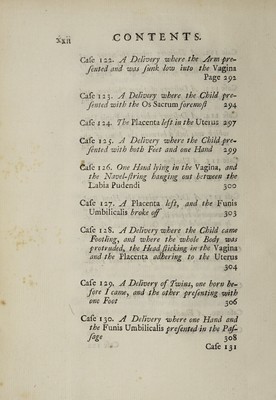 xxii CONTENTS.
Caſe 122. A Delivery where the Arm pre-
ſented and was ſunk low into the Vagina
Page 292
Caſe 123. A Delivery where the Child pre-
ſented with the Os Sacrum foremoſt 294
Caſe 124. The Placenta left in the Uterus 297
Caſe 125. A Delivery where the Child pre-
ſented with both Feet and one Hand 299
Caſe 126. One Hand lying in the Vagina, and
the Navel-ſtring hanging out between the
Labia Pudendi 300
Caſe 127. A Placenta left, and the Funis
Umbilicalis broke off 303
Caſe 128. A Delivery where the Child came
Footling, and where the whole Body was
protruded, the Head ſticking in the Vagina
and the Placenta adhering to the Uterus
304
Caſe 129. A Delivery of Twins, one born be-
fore I came, and the other preſenting with
one Foot 306
Caſe 130. A Delivery where one Hand and
the Funis Umbilicalis preſented in the Paſ-
ſage 308
Caſe 131